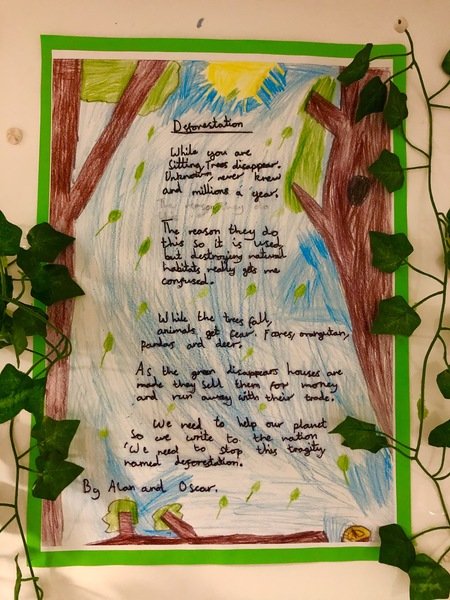 Deforestation
While you are
Sitting, Trees disappear.
Unknown, never knew
and millions a year.
The reason they do
The reason they do
this so it is used
but destroying natural
habitats really gets me
confused.
While the trees fall,
animals get fear. Foxes, orangutan,
pandas and deer.
As the green disappears houses are
made they sell them for money
and run away with their trade.
We need to help our planet
So we write to the nation
'We need to stop this tragity
named deforestation.
By Alan and Oscar.